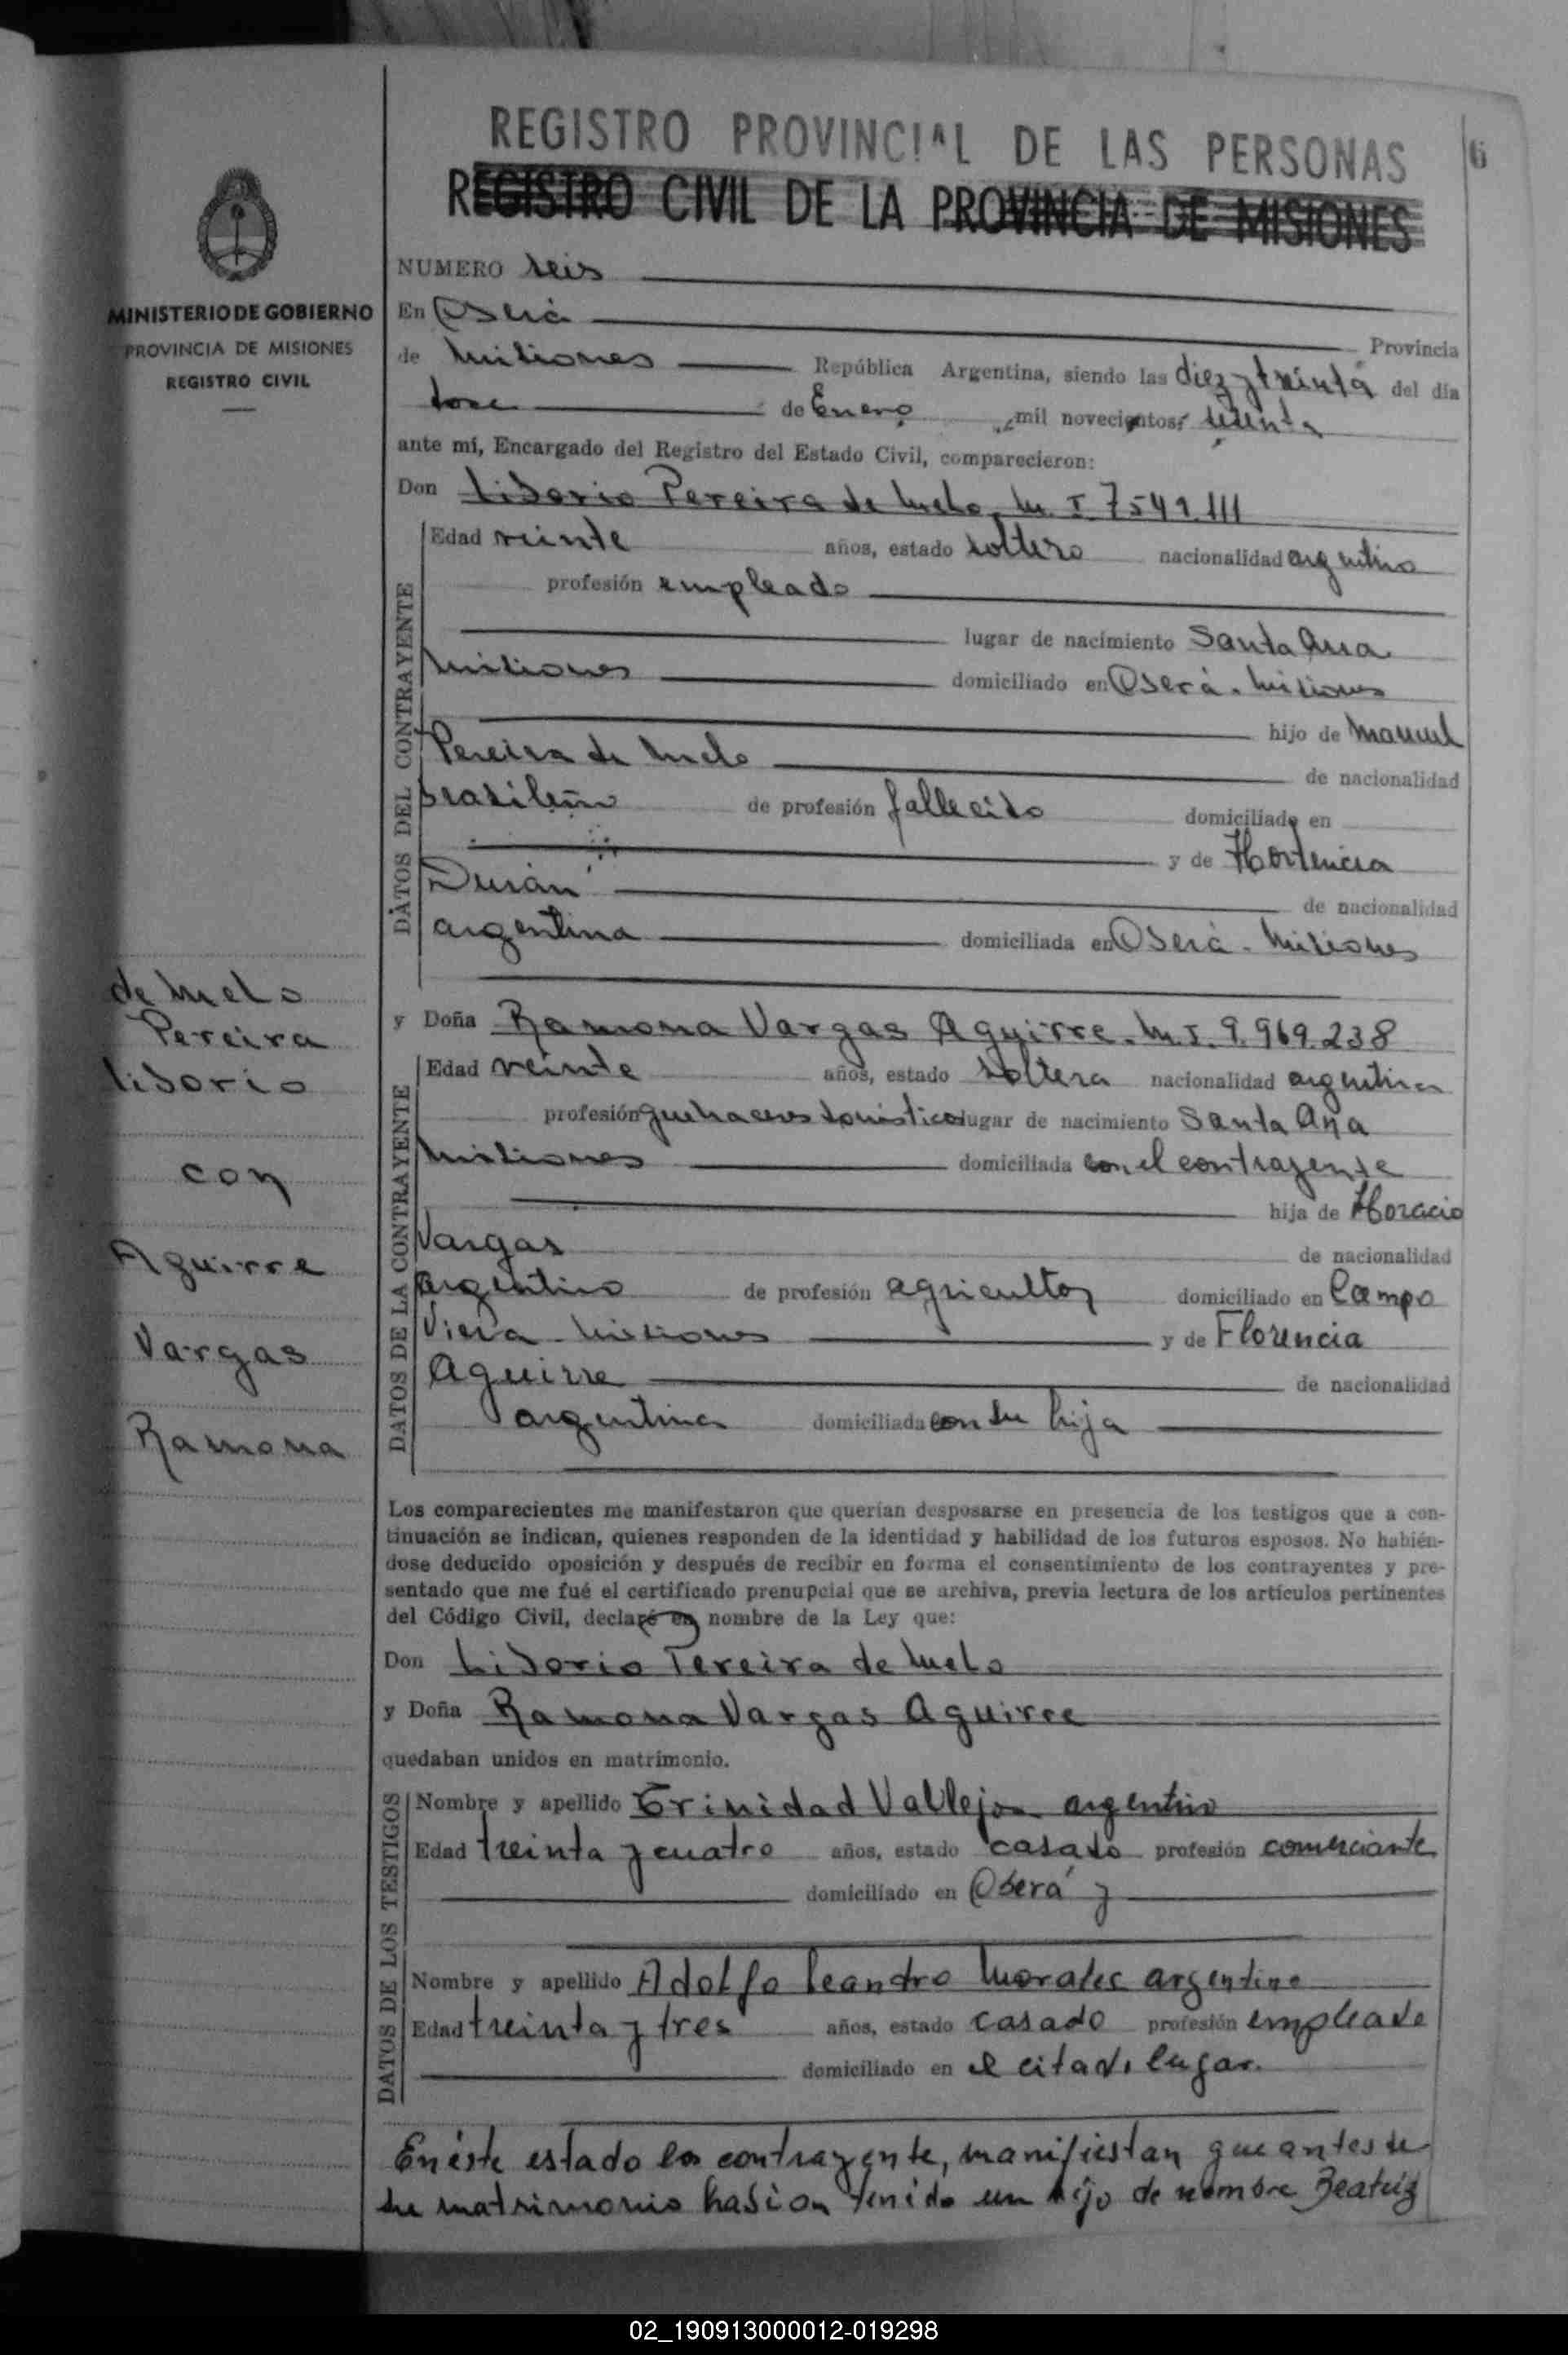 REGISTRO PROVINCIAL DE LAS PERSONAS
6
REGISTRO CIVIL DE LA PROVINCIA DE MISIONES
MINISTERIO DE GOBIERNO
PROVINCIA DE MISIONES
REGISTRO CIVIL
NUMERO seis
En Oberá Provincia
de Misiones República Argentina, siendo las diez y treinta del día
doce de Enero mil novecientos
ante mí, Encargado del Registro del Estado Civil, comparecieron:
Don Liborio Pereira de Melo. M. I. 7541.111
DATOS DEL CONTRAYENTE
Edad veinte años, estado soltero nacionalidad argentino
profesión empleado
lugar de nacimiento Santa Ana
Misiones domiciliado en Oberá. Misiones
hijo de Manuel
Pereira de Melo de nacionalidad
brasileño de profesión fallecido domiciliado en
y de Hortencia
Durán de nacionalidad
argentina domiciliada en Oberá - Misiones
de Melo
Pereira
Liborio
con
Aguirre
Vargas
Ramona
y Doña Ramona Vargas Aguirre. M. I. 9.969.238
DATOS DE LA CONTRAYENTE
Edad veinte años, estado soltera nacionalidad argentina
profesión quehaceres domésticos lugar de nacimiento Santa Ana
Misiones domiciliada con el contrayente
hija de Horacio
Vargas de nacionalidad
argentino de profesión agricultor domiciliado en Campo
Viera - Misiones y de Florencia
Aguirre de nacionalidad
argentina domiciliada con su hija
Los comparecientes me manifestaron que querían desposarse en presencia de los testigos que a con-
tinuación se indican, quienes responden de la identidad y habilidad de los futuros esposos. No habién-
dose deducido oposición y después de recibir en forma el consentimiento de los contrayentes y pre-
sentado que me fué el certificado prenupcial que se archiva, previa lectura de los artículos pertinentes
del Código Civil, declaré en nombre de la Ley que:
Don Liborio Pereira de Melo
y Doña Ramona Vargas Aguirre
quedaban unidos en matrimonio.
DATOS DE LOS TESTIGOS
Nombre y apellido Trinidad Vallejos argentino
Edad treinta y cuatro años, estado casado profesión comerciante
domiciliado en Oberá y
Nombre y apellido Adolfo Leandro Morales argentino
Edad treinta y tres años, estado casado profesión empleado
domiciliado en el citado lugar.
En éste estado los contrayente, manifiestan que antes de
su matrimonio habían tenido un hijo de nombre Beatriz
02_190913000012-019298